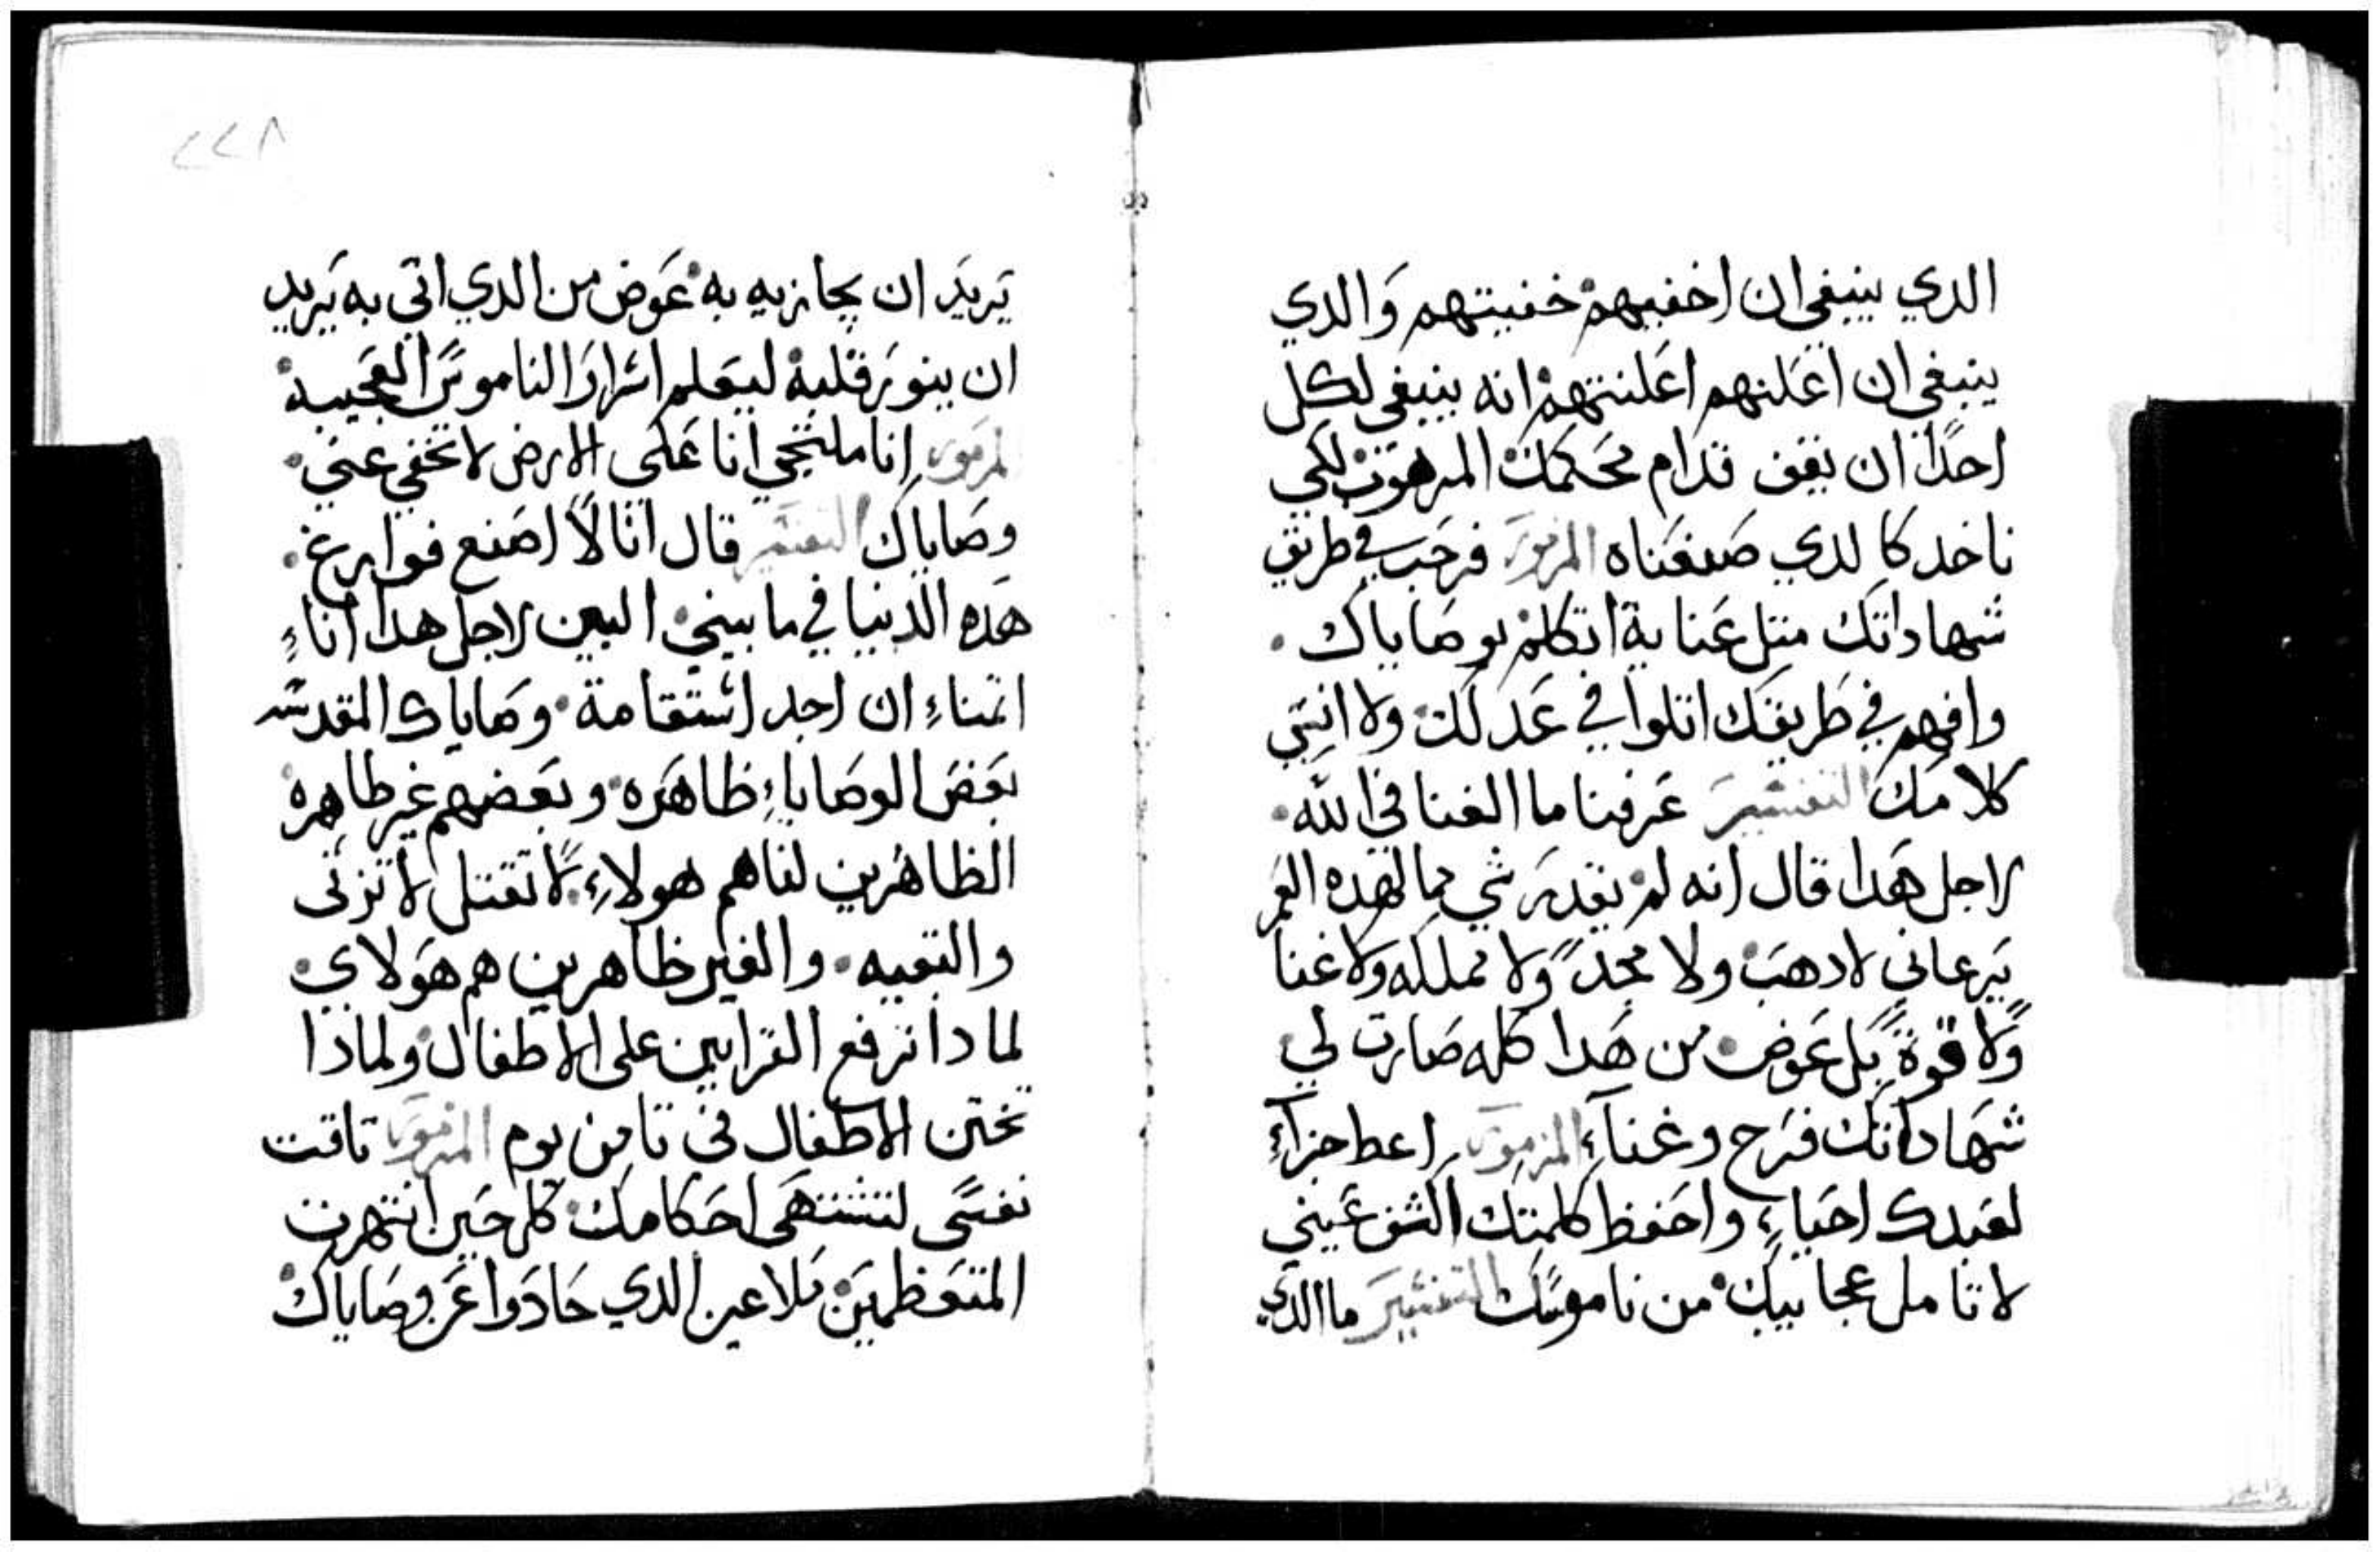 الدي ينبغي ان اخفيهم خفيتهم والدي
ينبغي ان اعلنهم اعلنتهم انه ينبغي لكل
احدا ان يقف قدام محكمك المرهوب لكي
ناخد كالدي صنعناه المزمور فرحت في طريق
شهاداتك متل عناية اتكلم بوصاياك
وافهم في طريقك اتلوا في عدلك ولا انسي
كلامك التفسير عرفنا ما الغنا في الله
لاجل هدا قال انه لم يقدر شي مما لهده العمر
يرعاني لا دهب ولا مجد ولا مملكه ولا غنا
ولا قوة بل عوض من هدا كله صارت لي
شهاداتك فرح وغناء المزمور اعط جزاء
لعبدك احياء واحفظ كلمتك اكشف عيني
لاتامل عجايبك من ناموسك التفسير ما الدي
٢٢٨
يريد ان يجازيه به عوض من الدي اتي به يريد
ان ينور قلبه ليعلم اسرار الناموس العجيبه
المزمور انا ملتجي انا على الارض لا تخفي عني
وصاياك التفسير قال انا لا اصنع فوارغ
هده الدنيا في ما بيني البين لاجل هدا انا
اتمناء ان اجد استقامة وصاياك المقدسه
بعض الوصايا ظاهره وبعضهم غير ظاهره
الظاهرين لنا هم هولاء لا تقتل لا تزني
والتقيه والغير ظاهرين هم هولاي
لمادا نرفع القرابين على الاطفال ولمادا
تختن الاطفال في تامن يوم المزمور تاقت
نفسي لتشتهي احكامك كل حين انتهرت
المتعظمين ملاعين الدي حادوا عن وصاياك